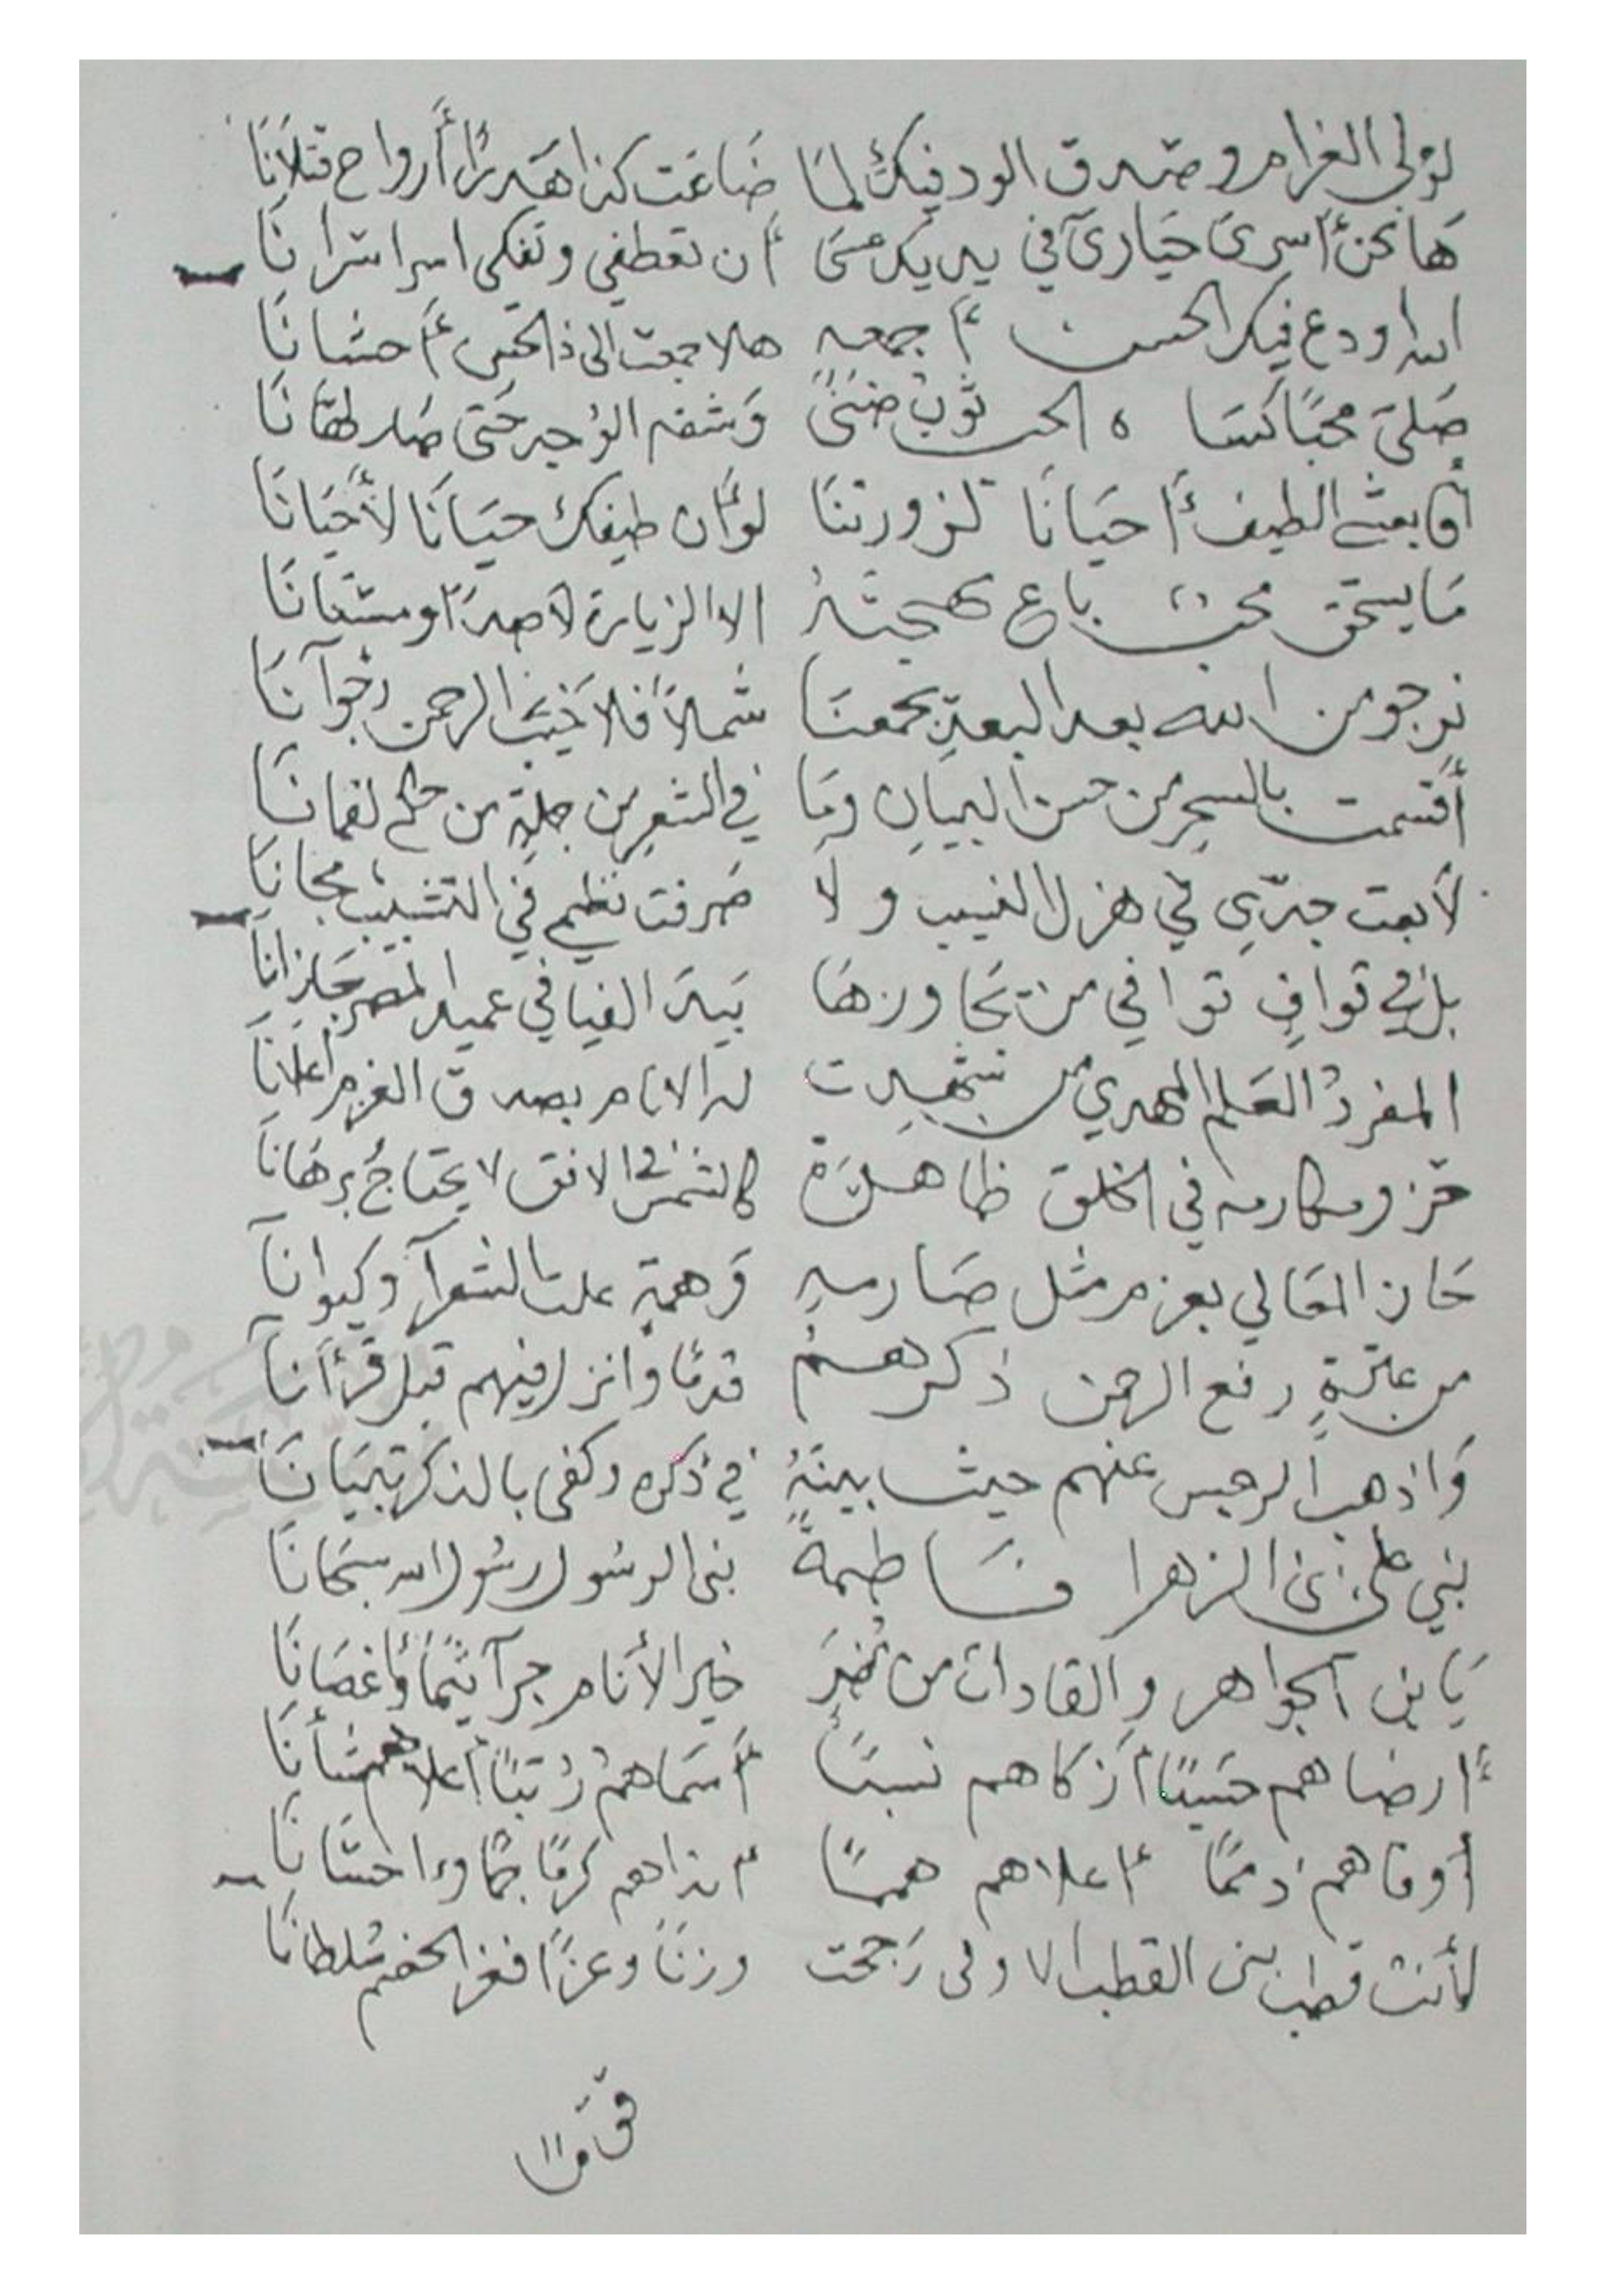 لولى الغرام وصدق الود فيك لما ضاعت كذا هدرًا أرواح قتلانا
ها نحن أسرى حيارى في يديك عسى أن تعطفي وتفكي اسر اسرانا
الله اودع فيك الحسن أجمعه هلا جمعت الى ذا الحسن أحسانا
صلي محبًا كساه الحب ثوب ضنىً وشفه الوجد حتى صار لهفانا
أو ابعثي الطيف أحيانًا لزورتنا لو أن طيفك حيانا لأحيانا
ما يستحق محب باع مهجته الا الزيارة لا صدًا وهجرانا
نرجو من الله بعد البعد يجمعنا شملاً فلا خيب الرحمن رجوآنا
أقسمت بالسحر من حسن البيان وما في الشعر من حلية من حكم لقمانا
لا بعت جدّي في هزل النسيب ولا صرفت نظمي في التشبيب مجانا
بل في قوافٍ توافي من تجاوزها بيد الفيافي عميد المصر جازانا
المفرد العلم المهدي من شهدت له الانام بصدق العزم أعلانا
قرم ومكارمه في الخلق ظاهرة كالشمس في الافق لا يحتاج برهانا
حاز المعالي بعزم مثل صارمه وهمةٍ علت الشعرآ وكيوانا
من عترةٍ رفع الرحمن ذكرهم قدمًا وانزل فيهم قبل قرءآنا
واذهب الرجس عنهم حيث بينه في ذكره وكفى بالذكر تبيانا
بني علي بني الزهرا فاطمة بني الرسول رسول الله سبحانا
يابن الجواهر والقادات من مضر خير الأنام جرآثيمًا وأغصانا
أرضاهم حسبًا أزكاهم نسبًا أسماهم رتبًا أعلاهم شأنا
أوفاهم ذممًا أعلاهم هممًا أنداهم كرمًا جمًا وءاحسانا
لأنت قطب بني القطب الاولى رجحت وزنًا وعزًا فغز الخصم سلطانا